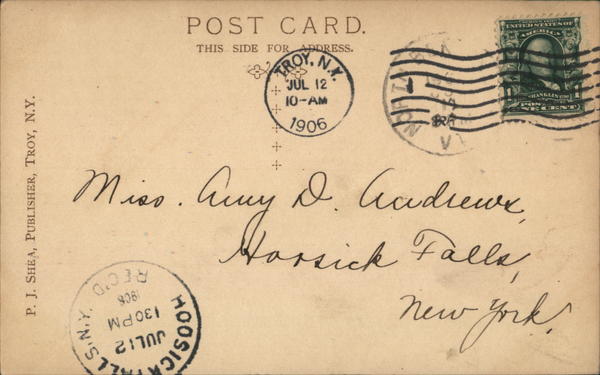 POST CARD.
THIS SIDE FOR ADDRESS.
TROY, N.Y.
JUL 12
10-AM
1906
UNITED STATES OF
AMERICA
FRANKLIN
1
ONE CENT
P. J. SHEA, PUBLISHER, TROY, N.Y.
Miss. Amy D. Andrews,
Hoosick Falls,
New York.
HOOSICK FALLS N.Y.
JUL 12
130 PM
1906
REC'D